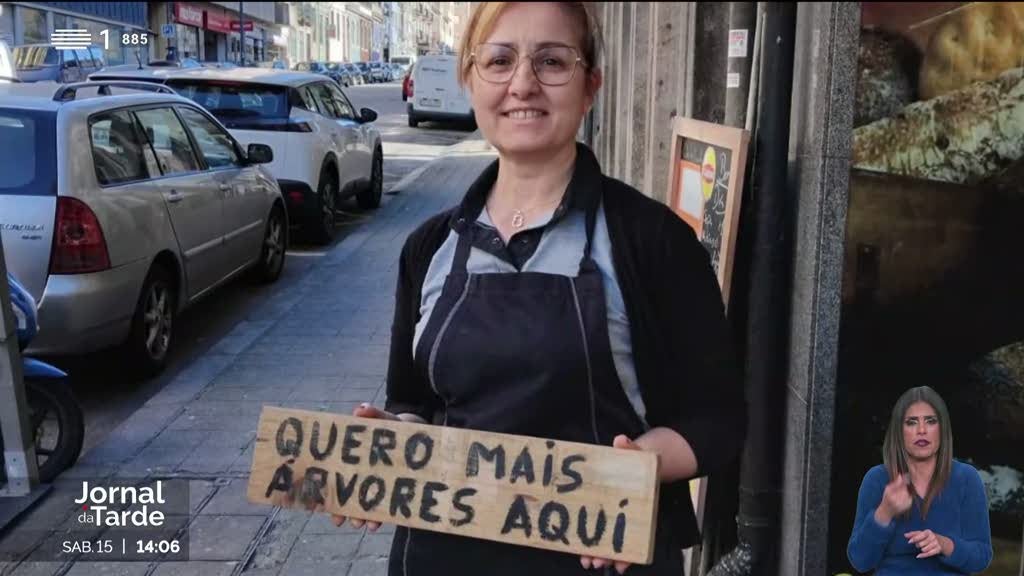 1 885
QUERO MAIS
ÁRVORES AQUÍ
Jornal
da Tarde
SAB.15 | 14:06